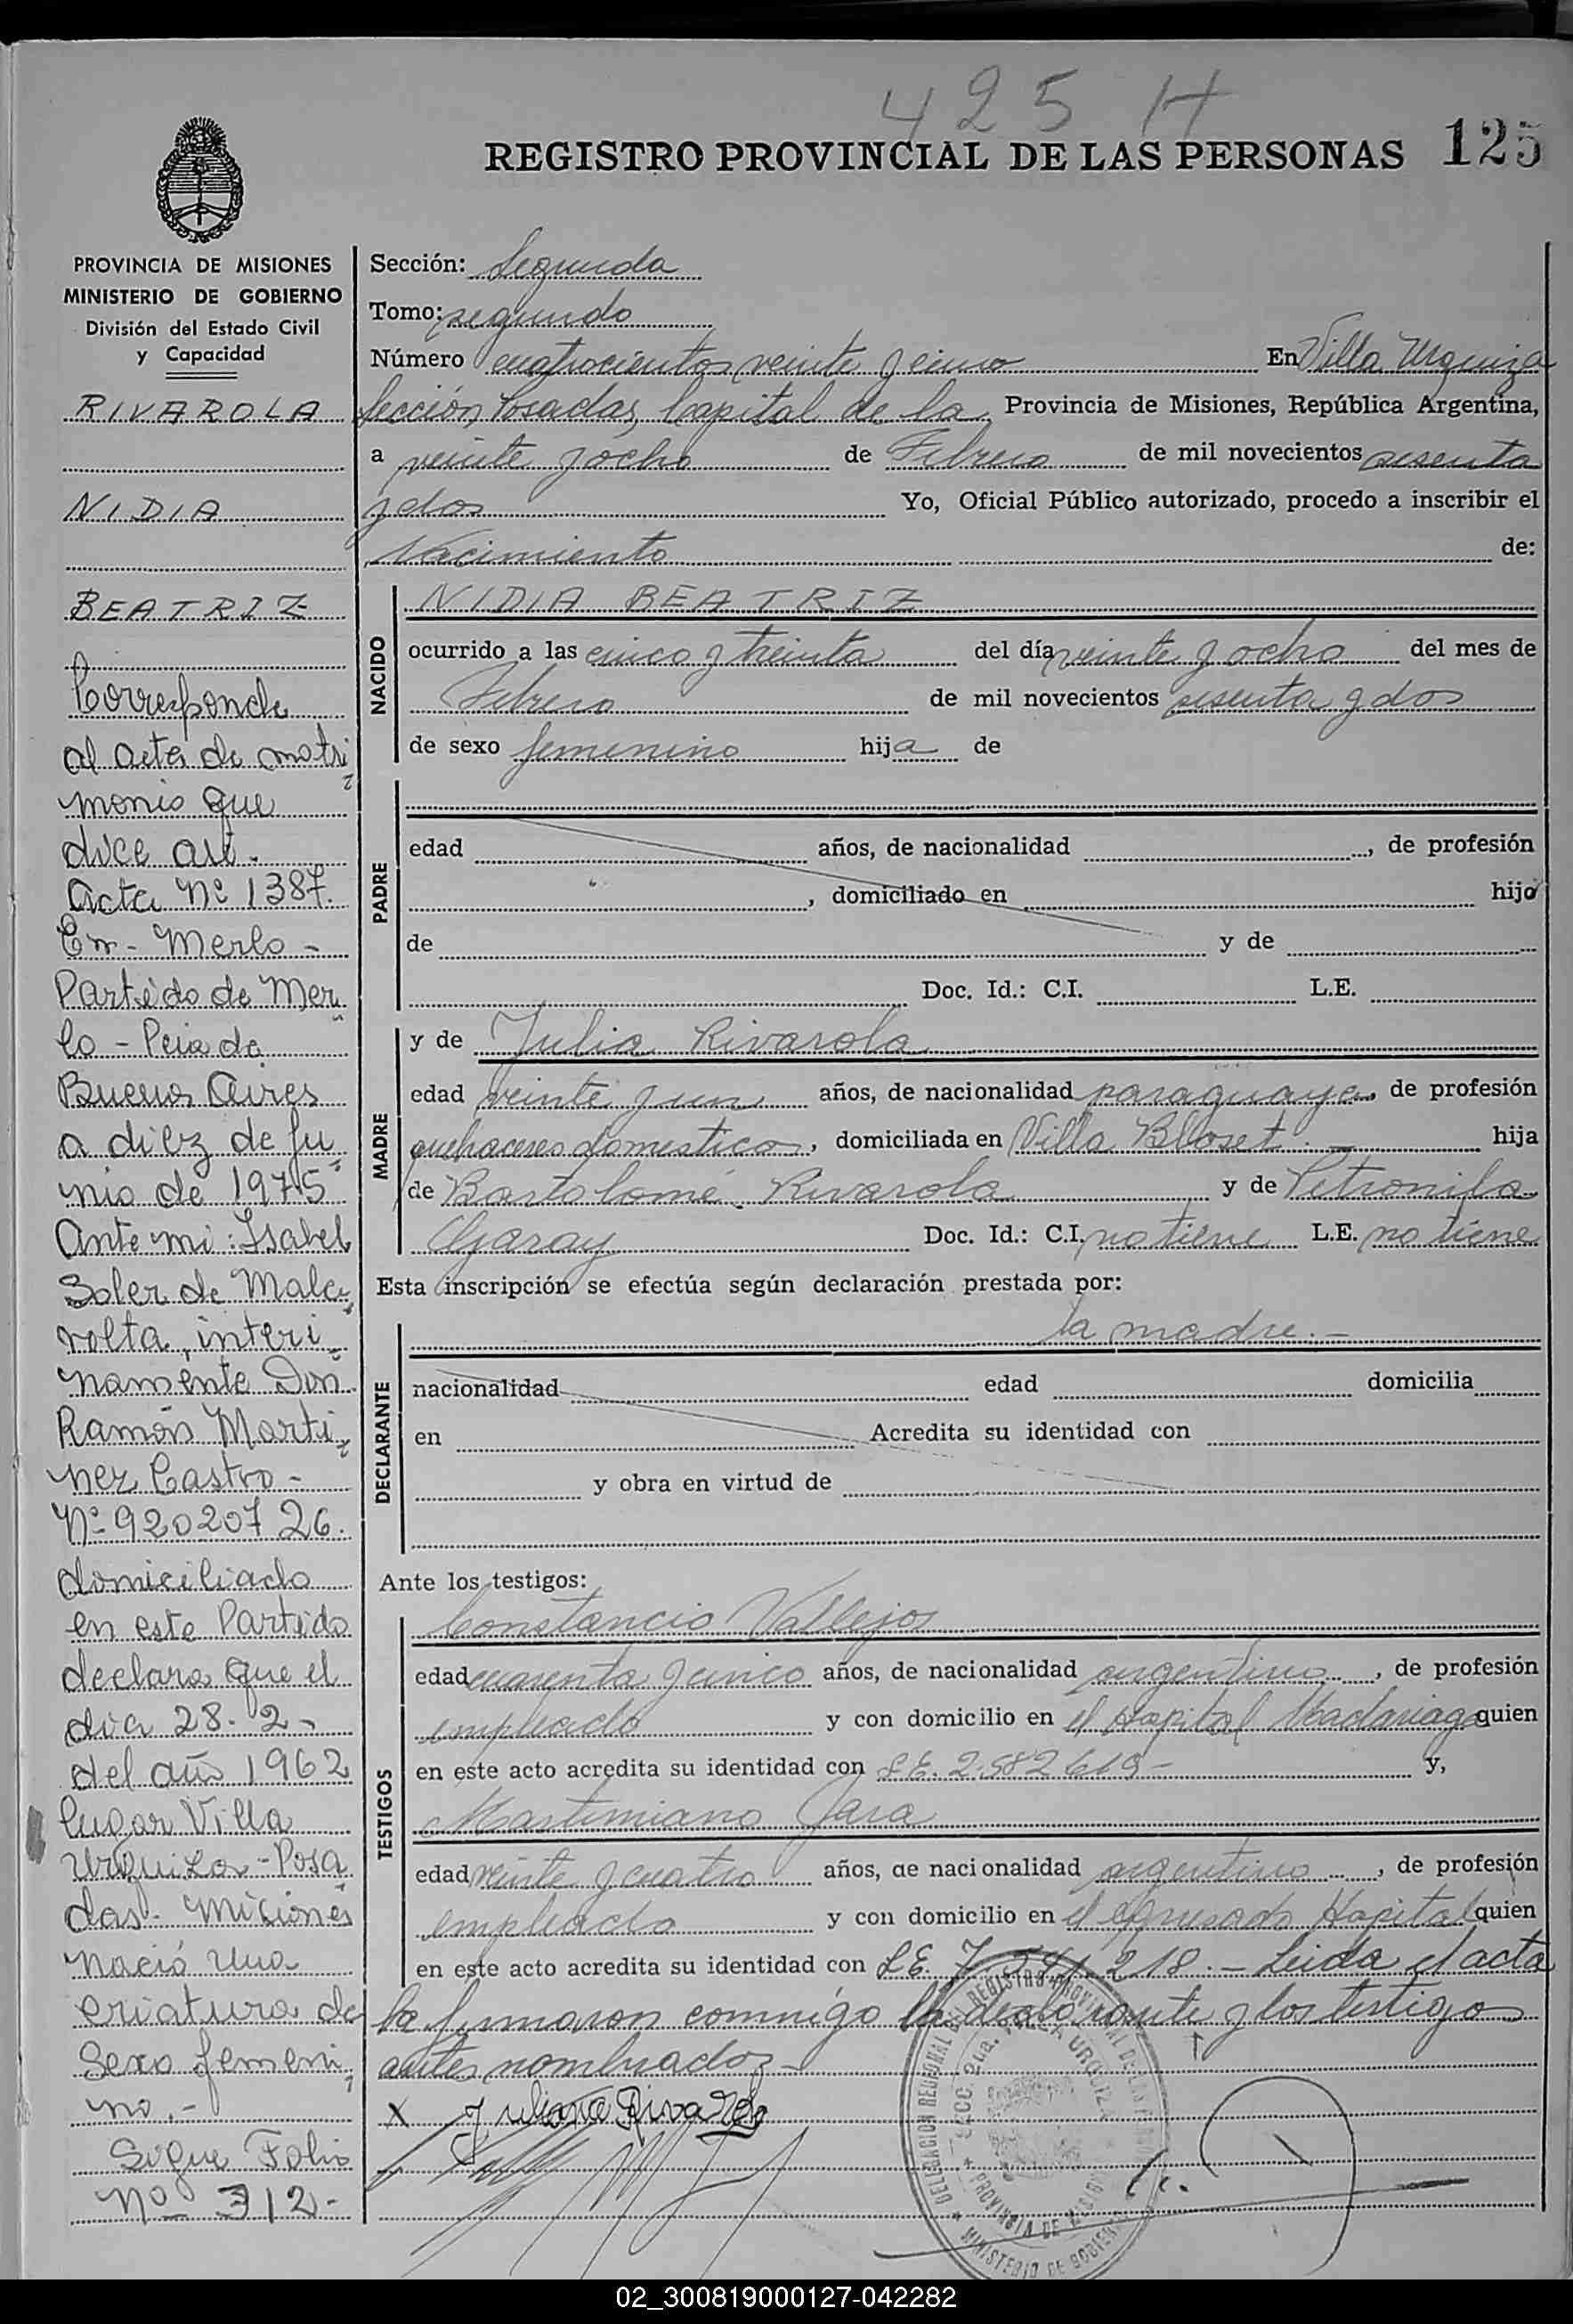 425 H
REGISTRO PROVINCIAL DE LAS PERSONAS 125
PROVINCIA DE MISIONES
MINISTERIO DE GOBIERNO
División del Estado Civil
y Capacidad
RIVAROLA
NIDIA
BEATRIZ
Corresponde
al acta de matri
monio que
dice así.
Acta Nº 1387.
En - Merlo -
Partido de Mer
lo - Pcia de
Buenos Aires
a diez de Ju
nio de 1975
Ante mi: Isabel
Soler de Mala
volta, interi
namente Don
Ramón Marti
nez Castro -
Nº 92020726.
domiciliado
en este Partido
declara que el
dia 28-2-
del año 1962
lugar Villa
Urquiza - Posa
das - Miciones
nació una
criatura de
Sexo femeni
no.-
Sigue Folio
Nº 312-
Sección: Segunda
Tomo: segundo
Número cuatrocientos veinte y cinco En Villa Urquiza
Sección, Posadas, Capital de la Provincia de Misiones, República Argentina,
a veinte y ocho de Febrero de mil novecientos sesenta
y dos Yo, Oficial Público autorizado, procedo a inscribir el
Nacimiento de:
NACIDO
NIDIA BEATRIZ
ocurrido a las cinco y treinta del día veinte y ocho del mes de
Febrero de mil novecientos sesenta y dos
de sexo femenino hija de
PADRE
edad años, de nacionalidad , de profesión
, domiciliado en hijo
de y de
Doc. Id.: C.I. L.E.
MADRE
y de Julia Rivarola
edad veinte y un años, de nacionalidad paraguaya, de profesión
quehaceres domestico, domiciliada en Villa Blloset.- hija
de Bartolomé Rivarola y de Petronila
Garay Doc. Id.: C.I. no tiene L.E. no tiene
Esta inscripción se efectúa según declaración prestada por:
DECLARANTE
la madre.-
nacionalidad edad domicilia
en Acredita su identidad con
y obra en virtud de
Ante los testigos:
TESTIGOS
Constancio Vallejos
edad cuarenta y cinco años, de nacionalidad argentino, de profesión
empleado y con domicilio en el Hospital Madariaga quien
en este acto acredita su identidad con L.E. 2.582.619- y,
Martimiano Jara
edad veinte y cuatro años, de nacionalidad argentino, de profesión
empleado y con domicilio en el expresado Hospital quien
en este acto acredita su identidad con L.E. 7. 218.- Leida el acta
la firmaron conmigo la declarante y los testigos
antes nombrados-
x Juliana Rivarola
DELEGACION REGIONAL DEL REGISTRO PROVINCIAL DE LAS
SECC. 2da. VILLA URQUIZA
PROVINCIA DE MISIONES
MINISTERIO DE GOBIERNO
02_300819000127-042282